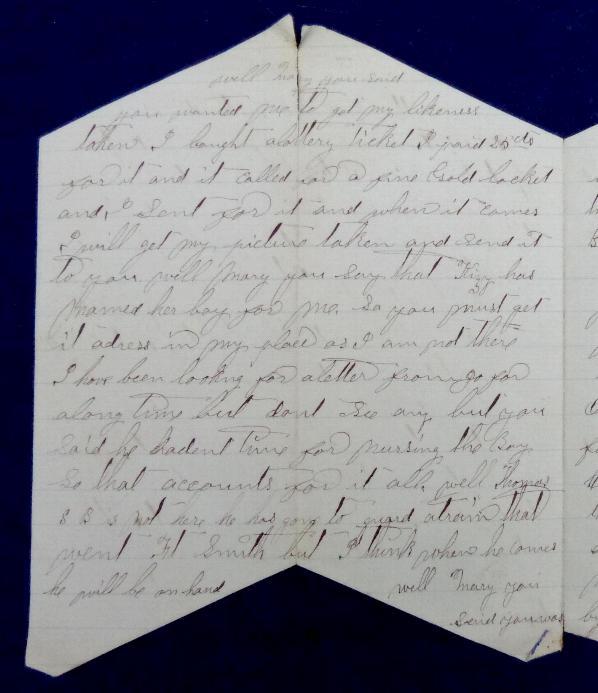 well Mary you said
you wanted me to get my likeness
taken I bought alottery ticket I paid 25 cts
for it and it called for a fine Gold locket
and I Sent for it and when it comes
I will get my picture taken and Send it
to you well Mary you Say that Kizz has
named her boy for me. So you must get
it adress in my place as I am not there
I have been looking for aletter from Jo for
along time but dont See any but you
said he hadent time for nursing the Boy
So that accounts for it all. well Thomas
S B is not here he has gong to guard atrain that
went Ft Smith but I think when he comes
he will be on hand well Mary you
Send you was